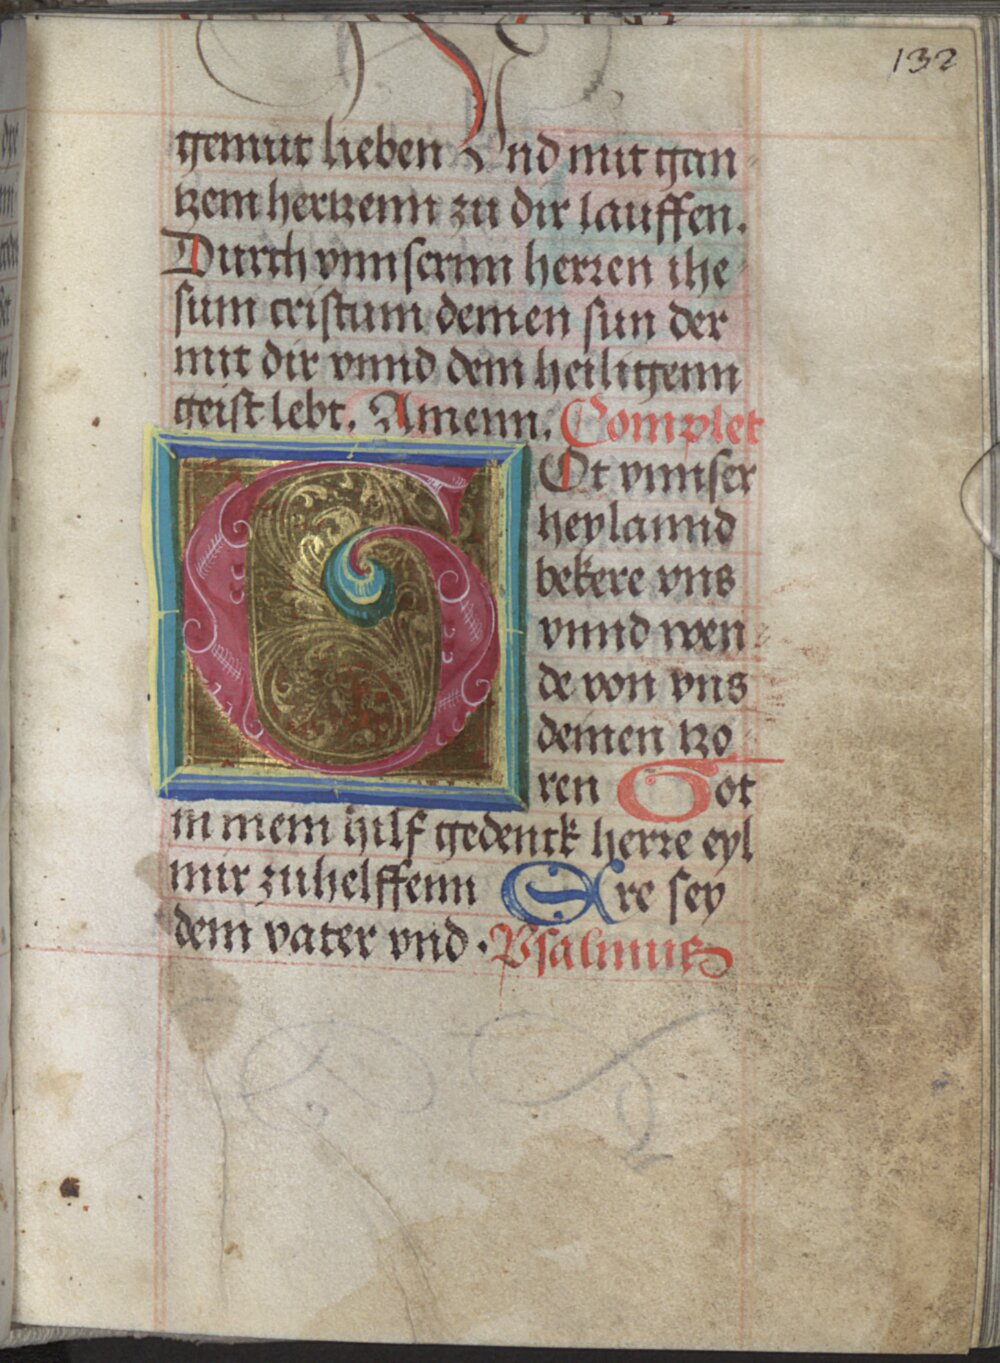 132
gemut lieben Und mit gan
tzem hertzenn zu dir lauffen.
Durch vnnsernn herren ihe
sum cristum deinen sun der
mit dir vnnd dem heiligenn
geist lebt. Amenn. Complet
GOt vnnser
heylannd
bekere vns
vnnd wen
de von vns
deinen tzo
ren Got
in mein hilf gedenck herre eyl
mir zuhelffenn Ere sey
dem vater vnd. Psalmus